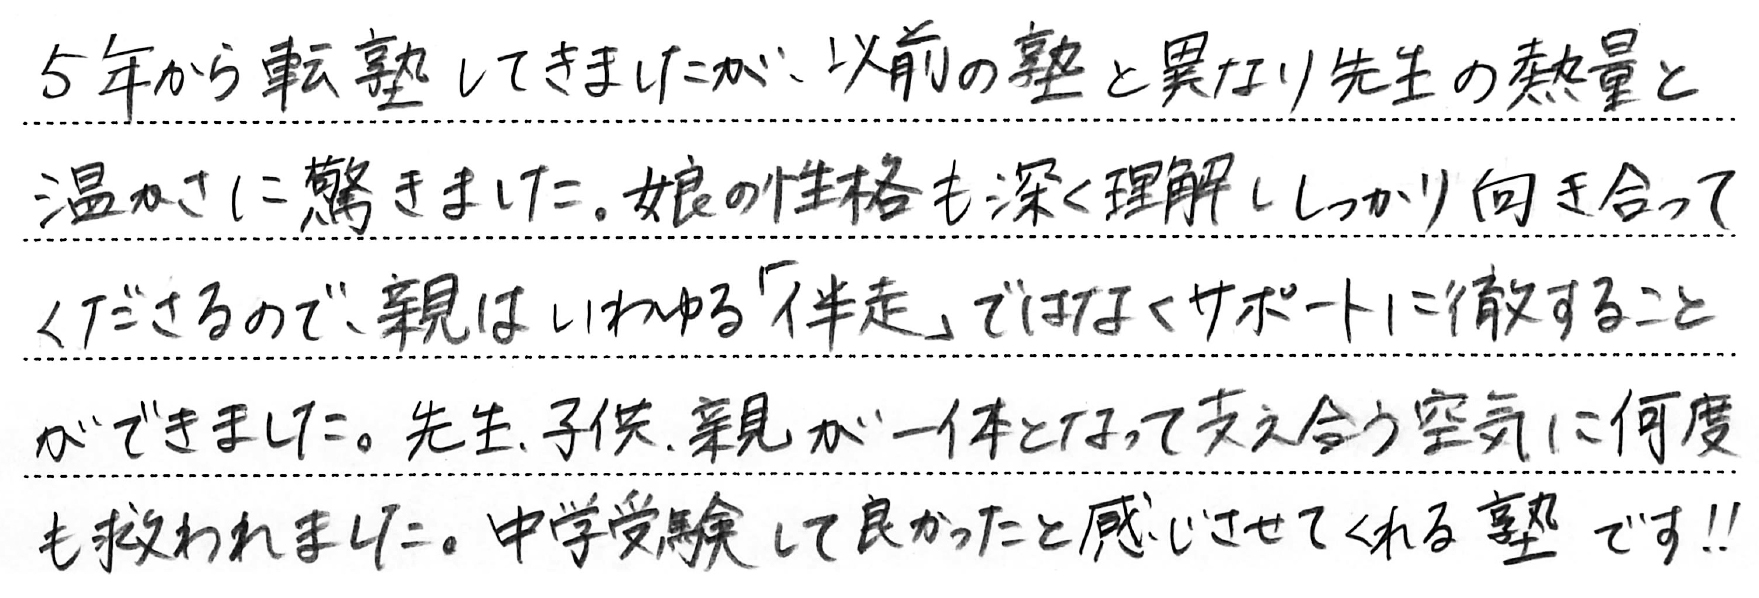 5年から転塾してきましたが、以前の塾と異なり先生の熱量と
温かさに驚きました。娘の性格も深く理解ししっかり向き合って
くださるので、親はいわゆる「伴走」ではなくサポートに徹すること
ができました。先生、子供、親が一体となって支え合う空気に何度
も救われました。中学受験して良かったと感じさせてくれる塾です!!